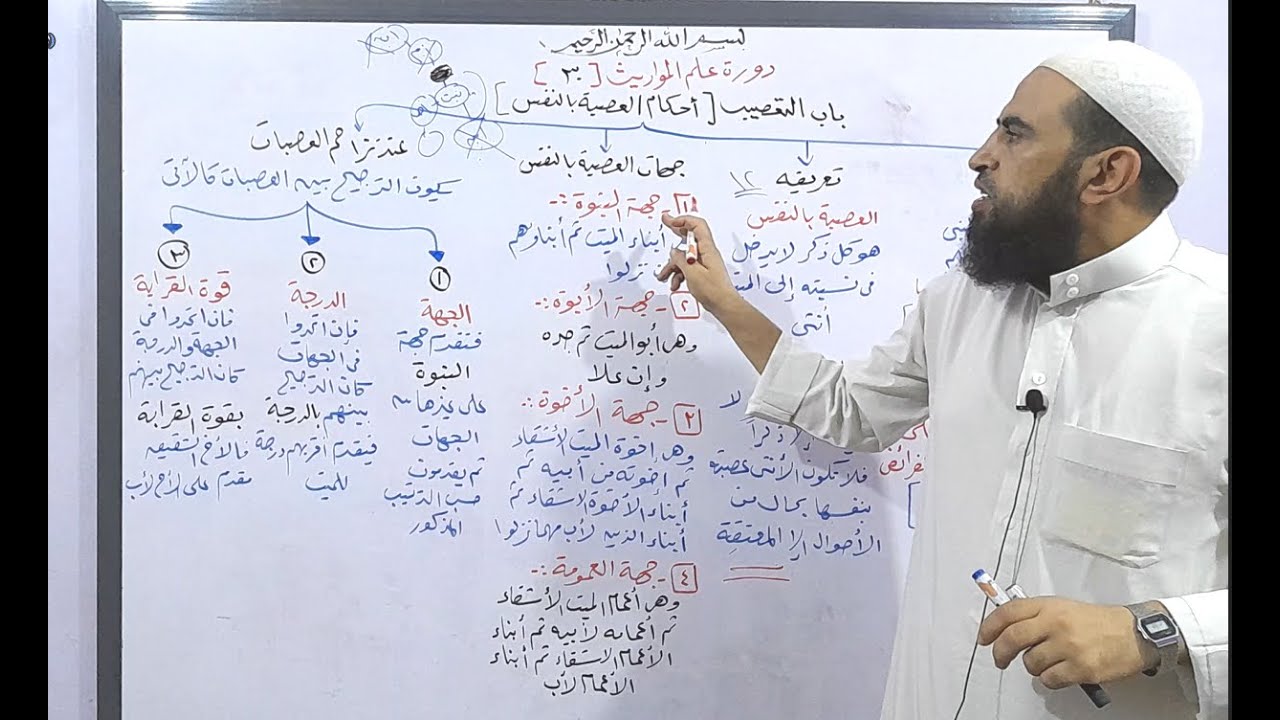 بسم الله الرحمن الرحيم
دورة علم المواريث [٣٠]
باب التعصيب [أحكام العصبة بالنفس]
تعريفه
العصبة بالنفس
هو كل ذكر لا يدخل
في نسبته إلى الميت
أنثى
لا
ذكراً
فلا تكون الأنثى عصبة
بنفسها بحال من
الأحوال إلا المعتقة
جهات العصبة بالنفس
١- جهة البنوة :-
أبناء الميت ثم أبناؤهم
نزلوا
٢- جهة الأبوة :-
وهر أبو الميت ثم جده
وإن علا
٣- جهة الأخوة :-
وهر إخوة الميت الأشقاء
ثم أخوته من أبيه ثم
أبناء الأخوة الأشقاء ثم
أبناء الذين لأب مهما نزلوا
٤- جهة العمومة :-
وهر أعمام الميت الأشقاء
ثم أعمامه لأبيه ثم أبناء
الأعمام الأشقاء ثم أبناء
الأعمام لأب
عند تزاحم العصبات
يكون الترجيح بين العصبات كالآتى
١
الجهة
فتقدم جهة
البنوة
على غيرها من
الجهات
ثم يقدمون
حسب الترتيب
المذكور
٢
الدرجة
فإن اتحدوا
فى الجهات
كان الترجيح
بينهم بالدرجة
فيقدم أقربهم درجة
للميت
٣
قوة القرابة
فإن اتحدوا فى
الجهة والدرجة
كان الترجيح بينهم
بقوة القرابة
فالأخ الشقيق
مقدم على الأخ لأب